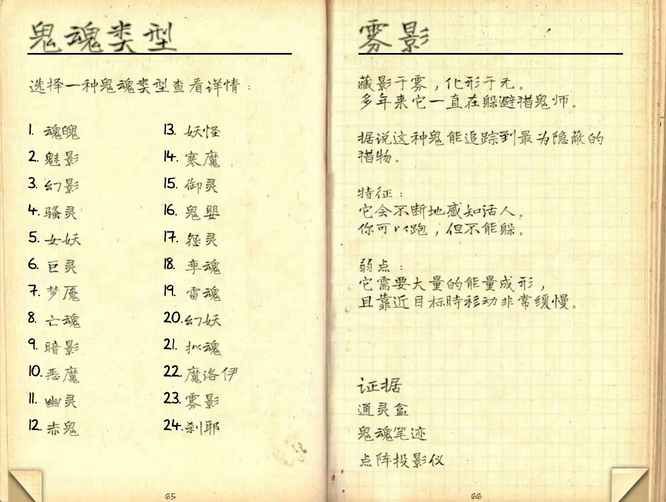 鬼魂类型
选择一种鬼魂类型查看详情：
1. 魂魄
2. 魅影
3. 幻影
4. 骚灵
5. 女妖
6. 巨灵
7. 梦魇
8. 亡魂
9. 暗影
10. 恶魔
11. 幽灵
12. 赤鬼
13. 妖怪
14. 寒魔
15. 御灵
16. 鬼婴
17. 怨灵
18. 孪魂
19. 雷魂
20. 幻妖
21. 拟魂
22. 魔洛伊
23. 雾影
24. 刹耶
65
雾影
藏影于雾，化形于无。
多年来它一直在躲避猎鬼师。
据说这种鬼能追踪到最为隐蔽的
猎物。
特征：
它会不断地感知活人。
你可以跑，但不能躲。
弱点：
它需要大量的能量成形，
且靠近目标时移动非常缓慢。
证据
通灵盒
鬼魂笔迹
点阵投影仪
66